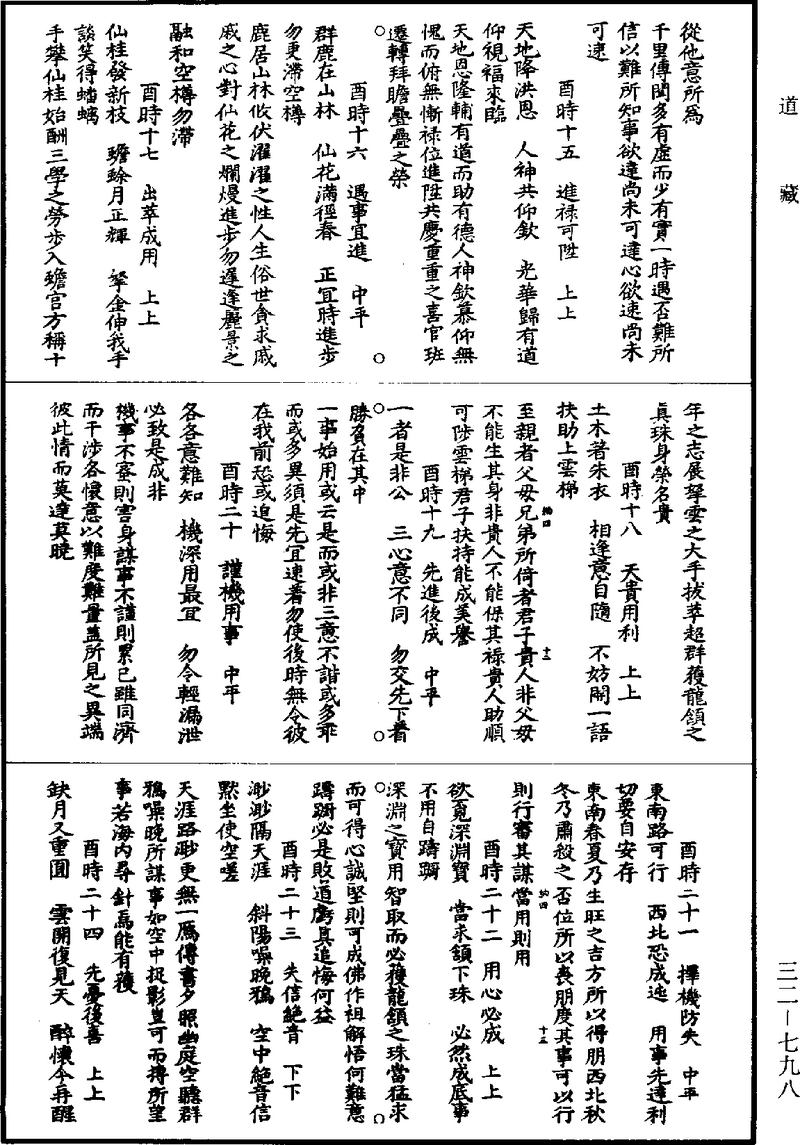 道藏
從他意所為
千里傳聞多有虛而少有實一時遇否難所
信以難所知事欲達尚未可達心欲速尚未
可速
酉時十五　進祿可陞　上上
天地降洪恩　人神共仰欽　光華歸有道
仰視福來臨
天地恩隆輔有道而助有德人神欽慕仰無
愧而俯無慚祿位進陞共慶重重之喜官班
遷轉拜瞻疊疊之榮
酉時十六　遇事宜進　中平
群鹿在山林　仙花滿徑春　正宜時進步
勿更滯空樽
鹿居山林攸伏濯濯之性人生俗世貪求戚
戚之心對仙花之爛熳進步勿遲逢麗景之
融和空樽勿滯
酉時十七　出萃成用　上上
仙桂發新枝　蟾蜍月正輝　拏金伸我手
談笑得蟠螭
手攀仙桂始酬三學之勞步入蟾宮方稱十
年之志展拏雲之大手拔萃超群獲龍頷之
真珠身榮名貴
酉時十八　天貴用利　上上
土木著朱衣　相逢意自隨　不妨閒一語
扶助上雲梯
至親者父母兄弟所倚者君子貴人非父母
不能生其身非貴人不能保其祿貴人助順
可陟雲梯君子扶持能成美譽
酉時十九　先進後成　中平
一者是非公　三心意不同　勿交先下着
勝負在其中
一事始用或云是而或非三意不諧或多乖
而或多異須是先宜速着勿使後時無令彼
在我前恐或追悔
酉時二十　謹機用事　中平
各各意難知　機深用最宜　勿令輕漏泄
必致是成非
機事不密則害身謀事不謹則累己雖同濟
而干涉各懷意以難度難量蓋所見之異端
彼此情而莫達莫曉
酉時二十一　擇機防失　中平
東南路可行　西北恐成迍　用事先達利
切要自安存
東南春夏乃生旺之吉方所以得朋西北秋
冬乃肅殺之否位所以喪朋度其事可以行
則行審其謀當用則用
酉時二十二　用心必成　上上
欲覓深淵寶　當求頷下珠　必然成底事
不用自躊躕
深淵之寶用智取而必獲龍頷之珠當猛求
而可得心誠堅則可成佛作祖解悟何難意
躊躕必是敗道虧真追悔何益
酉時二十三　失信絕音　下下
渺渺隔天涯　斜陽噪晚鴉　空中絕音信
默坐使空嗟
天涯路渺更無一鴈傳書夕照幽庭空聽群
鴉噪晚所謀事如空中捉影豈可而摶所望
事若海內尋針焉能有獲
酉時二十四　先憂後喜　上上
缺月又重圓　雲開復見天　醉懷今再醒
三二—七九八